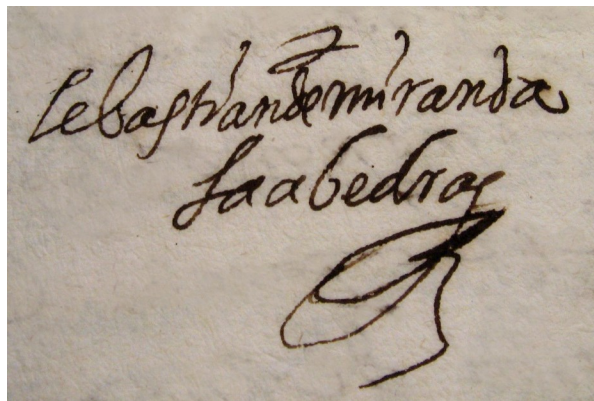 sebastiandemiranda
saabedra